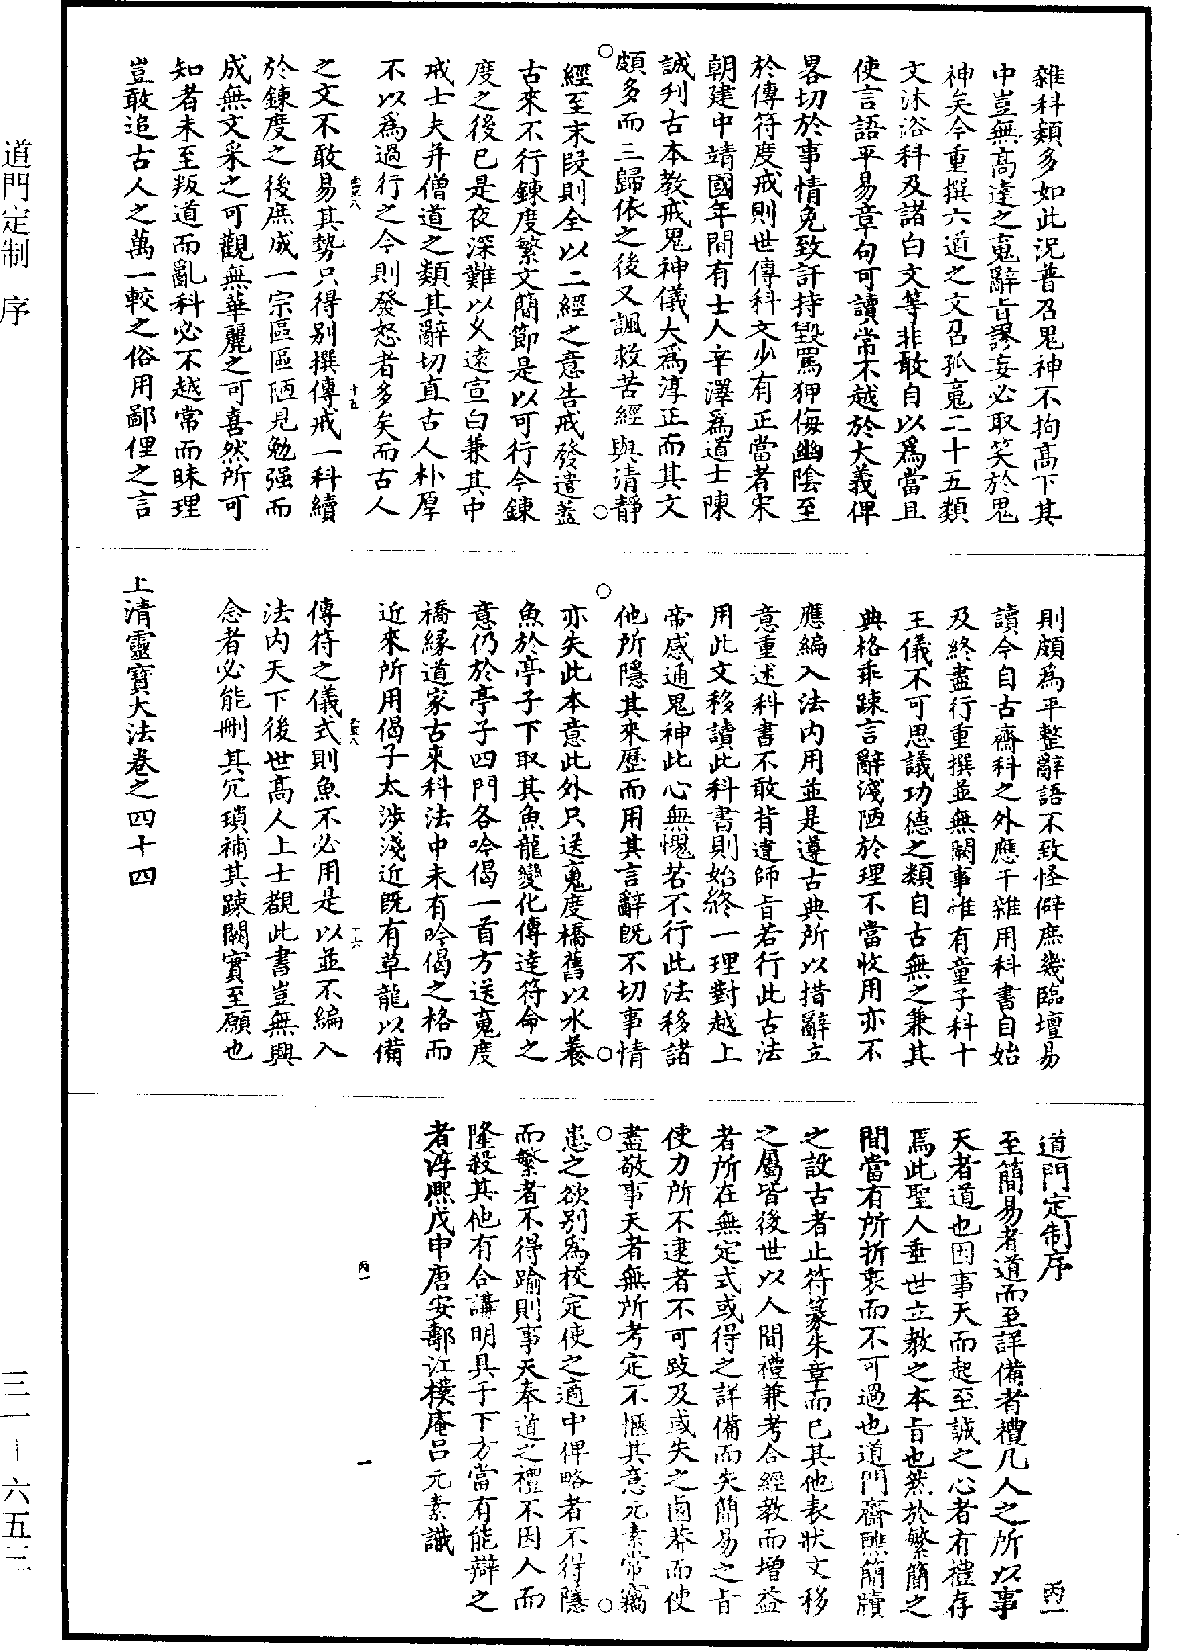 雜科頗多如此況普召鬼神不拘高下其
中豈無高達之䰟辭旨謬妄必取笑於鬼
神矣今重撰六道之文召孤䰟二十五類
文沐浴科及諸白文等非敢自以爲當且
使言語平易章句可讀常不越於大義俾
畧切於事情免致訐持毀罵狎侮幽陰至
於傳符度戒則世傳科文少有正當者宋
朝建中靖國年間有士人辛澤爲道士陳
誠刋古本教戒鬼神儀大爲淳正而其文
頗多而三歸依之後又諷救苦經與清靜
經至末段則全以二經之意告戒發遣蓋
古來不行鍊度繁文簡節是以可行今鍊
度之後已是夜深難以乆遠宣白兼其中
戒士夫并僧道之類其辭切直古人朴厚
不以爲過行之今則發怒者多矣而古人
之文不敢易其勢只得别撰傳戒一科續
於鍊度之後庶成一宗區區陋見勉强而
成無文采之可觀無華麗之可喜然所可
知者未至叛道而亂科必不越常而昧理
豈敢追古人之萬一較之俗用鄙俚之言
十五
則頗爲平整辭語不致怪僻庶幾臨壇易
讀今自古齋科之外應干雜用科書自始
及終盡行重撰並無闕事惟有童子科十
王儀不可思議功德之類自古無之兼其
典格乖踈言辭淺陋於理不當收用亦不
應編入法内用並是遵古典所以措辭立
意重述科書不敢背違師旨若行此古法
用此文移讀此科書則始終一理對越上
帝感通鬼神此心無愧若不行此法移諸
他所隱其來歷而用其言辭旣不切事情
亦失此本意此外只送䰟度橋舊以水養
魚於亭子下取其魚龍變化傳達符命之
意仍於亭子四門各吟偈一首方送䰟度
橋緣道家古來科法中未有吟偈之格而
近來所用偈子太涉淺近旣有草龍以備
傳符之儀式則魚不必用是以並不編入
法内天下後世高人上士覩此書豈無興
念者必能刪其冗瑣補其踈闕實至願也
十六
上清靈寶大法卷之四十四
道門定制序
丙一
至簡易者道而至詳備者禮凡人之所以事
天者道也因事天而起至誠之心者有禮存
焉此聖人垂世立教之本旨也然於繁簡之
間當有所折衷而不可過也道門齋醮簡牘
之設古者止符篆朱章而已其他表狀文移
之屬皆後世以人間禮兼考合經教而增益
者所在無定式或得之詳備而失簡易之旨
使力所不逮者不可跂及或失之鹵莽而使
盡敬事天者無所考定不愜其意元素常竊
患之欲别爲校定使之適中俾略者不得隱
而繁者不得踰則事天奉道之禮不因人而
隆殺其他有合講明具于下方當有能辯之
者淳熙戊申唐安鄩江樸庵吕元素識
丙一
一
道門定制　序
三一—六五三